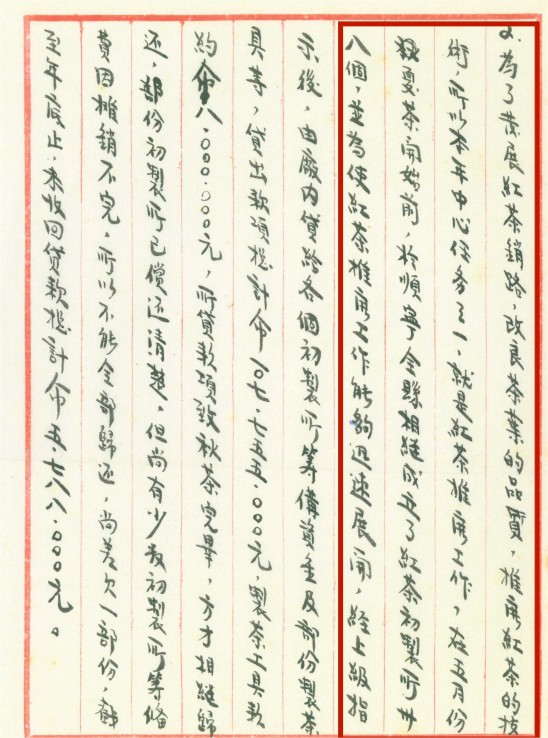 2.為了發展紅茶銷路,改良茶葉的品質,推廣紅茶的技
術,所以本年中心任務之一,就是紅茶推廣工作,在五月份
夏茶開始前,於順寧全縣相繼成立了紅茶初製所卅
八個,並為使紅茶推廣工作能夠迅速展開,經上級指
示後,由廠內貸給各個初製所籌備資金及部份製茶
具等,貸出款項總計人民幣一〇七.七五五.〇〇〇元,製茶工具款
約 八.〇〇〇.〇〇〇元,所貸款項致秋茶完畢,方才相繼歸
還,部份初製所已償還清楚,但尚有少數初製所籌備
費因推銷不完,所以不能全部歸還,尚差欠一部份,截
至年底止,未收回貸款總計 五.七八八.〇〇〇元。